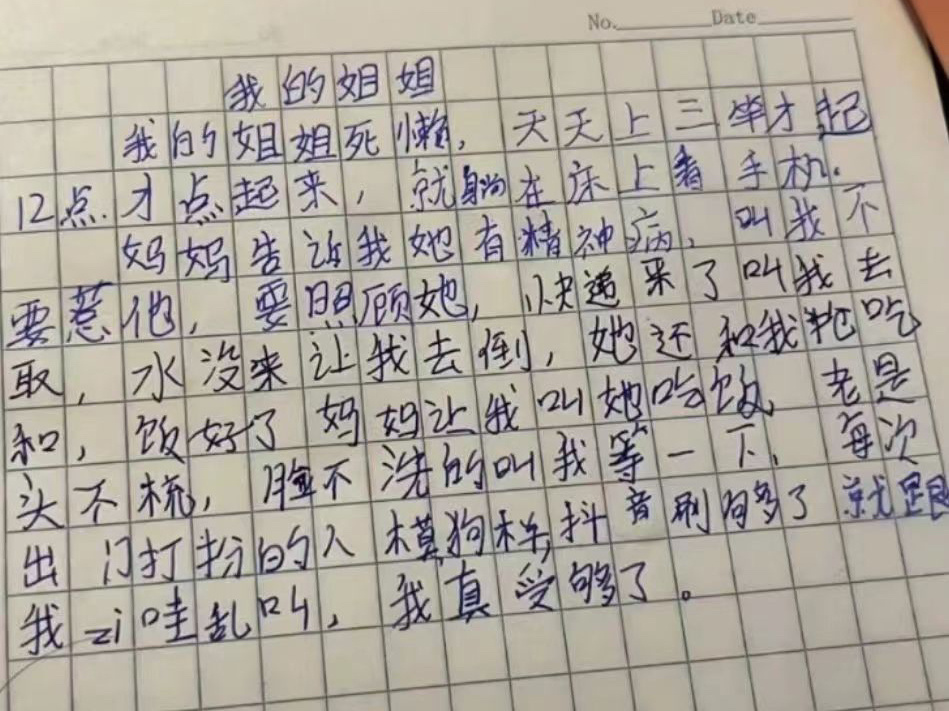 No. Date
我的姐姐
我的姐姐死懒，天天上三毕才起
12点才点起来，就躺在床上看手机.
妈妈告诉我她有精神病，叫我不
要惹他，要照顾她，快递来了叫我去
取，水没来让我去倒，她还和我抢吃
和，饭好了妈妈让我叫她吃饭 老是
头不梳，脸不洗的叫我等一下，每次
出门打扮的人模狗样，抖音刷够了就跟
我zi哇乱叫，我真受够了。